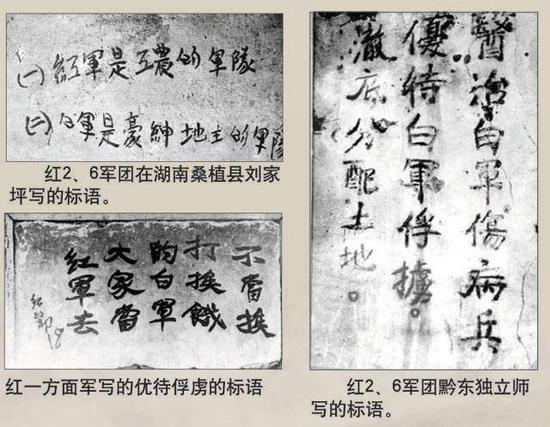 (一)紅軍是工農的軍隊
(二)白軍是豪紳地主的軍隊
红2、6军团在湖南桑植县刘家
坪写的标语。
不當挨
打挨餓
的白軍
大家當
紅軍去
红一方面军写的优待俘虏的标语
醫治白軍傷病兵
優待白軍俘擄。
澈底分配土地。
红2、6军团黔东独立师
写的标语。